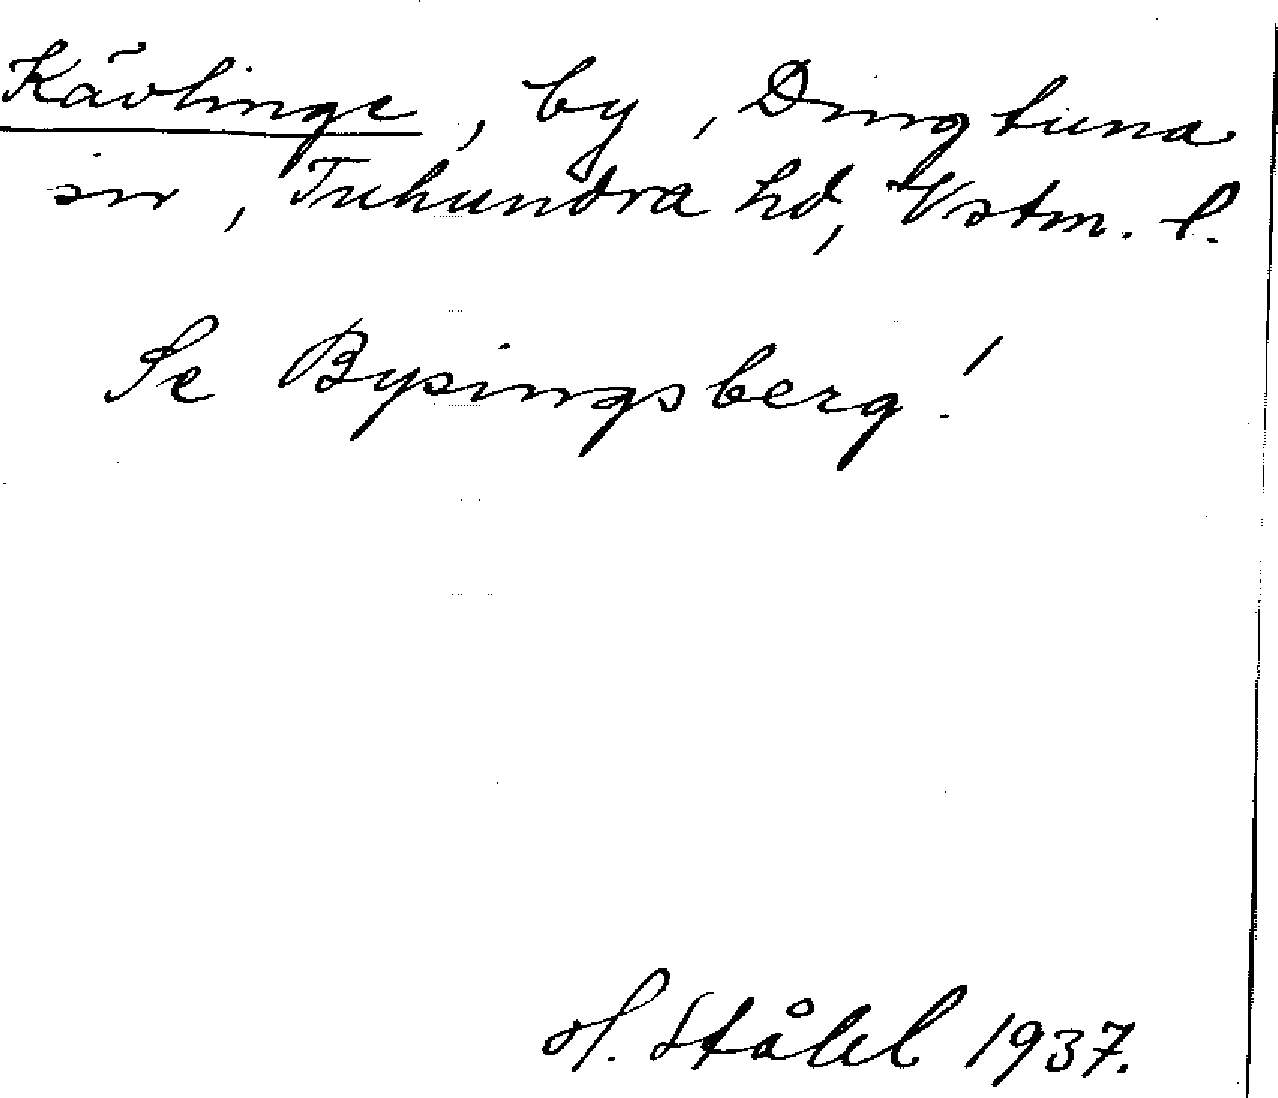 Kävlinge, by, Dingtuna
sn, Tuhundra hd, Vstm. l.
Se Bysingsberg!
H. Ståhl 1937.